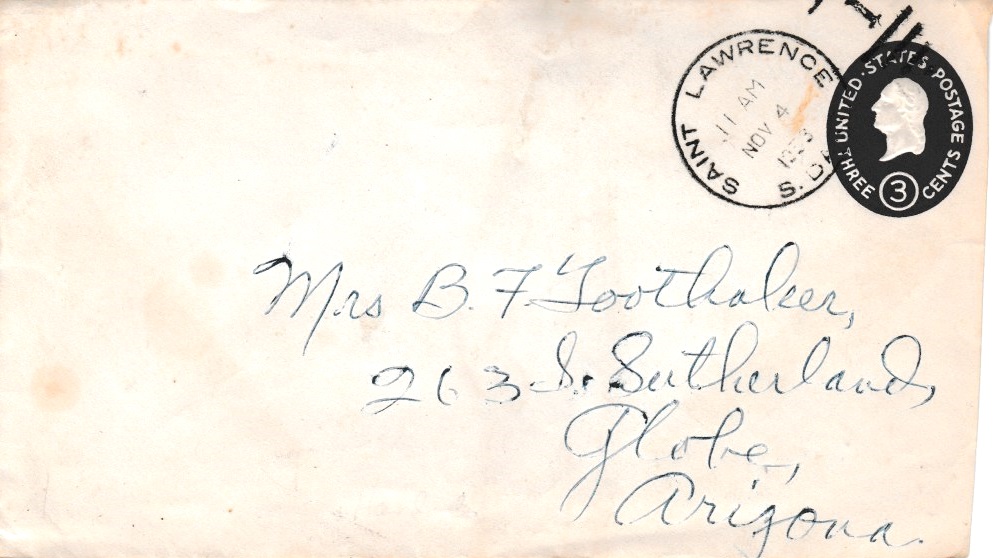 SAINT LAWRENCE
11 AM
NOV 4
S. D
UNITED STATES POSTAGE
THREE 3 CENTS
Mrs B. F Toothaker,
263 S. Sutherland,
Globe,
Arizona.